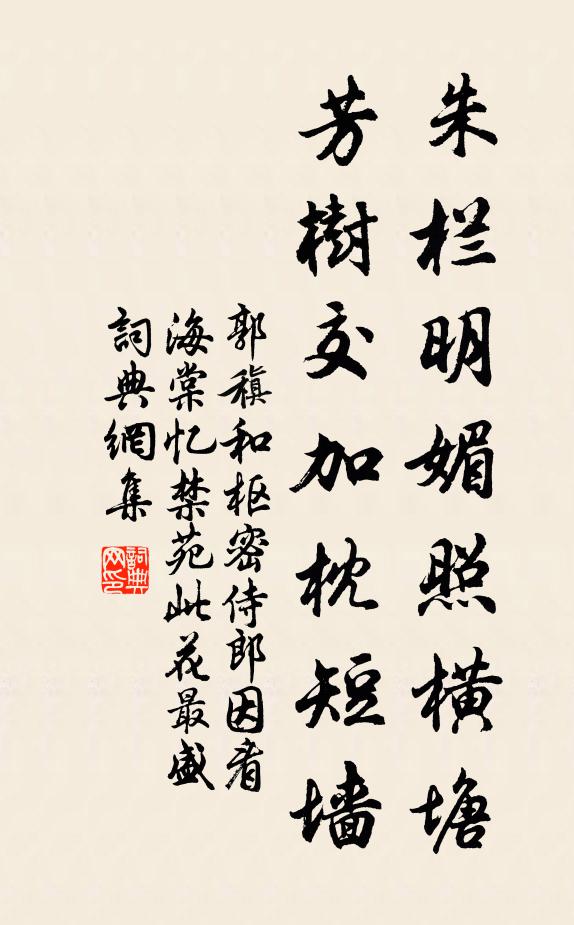 朱栏明媚照横塘
芳樹交加枕短墙
郭稹和枢密侍郎因看
海棠忆禁苑此花最盛
詞典網集
詞典
网印